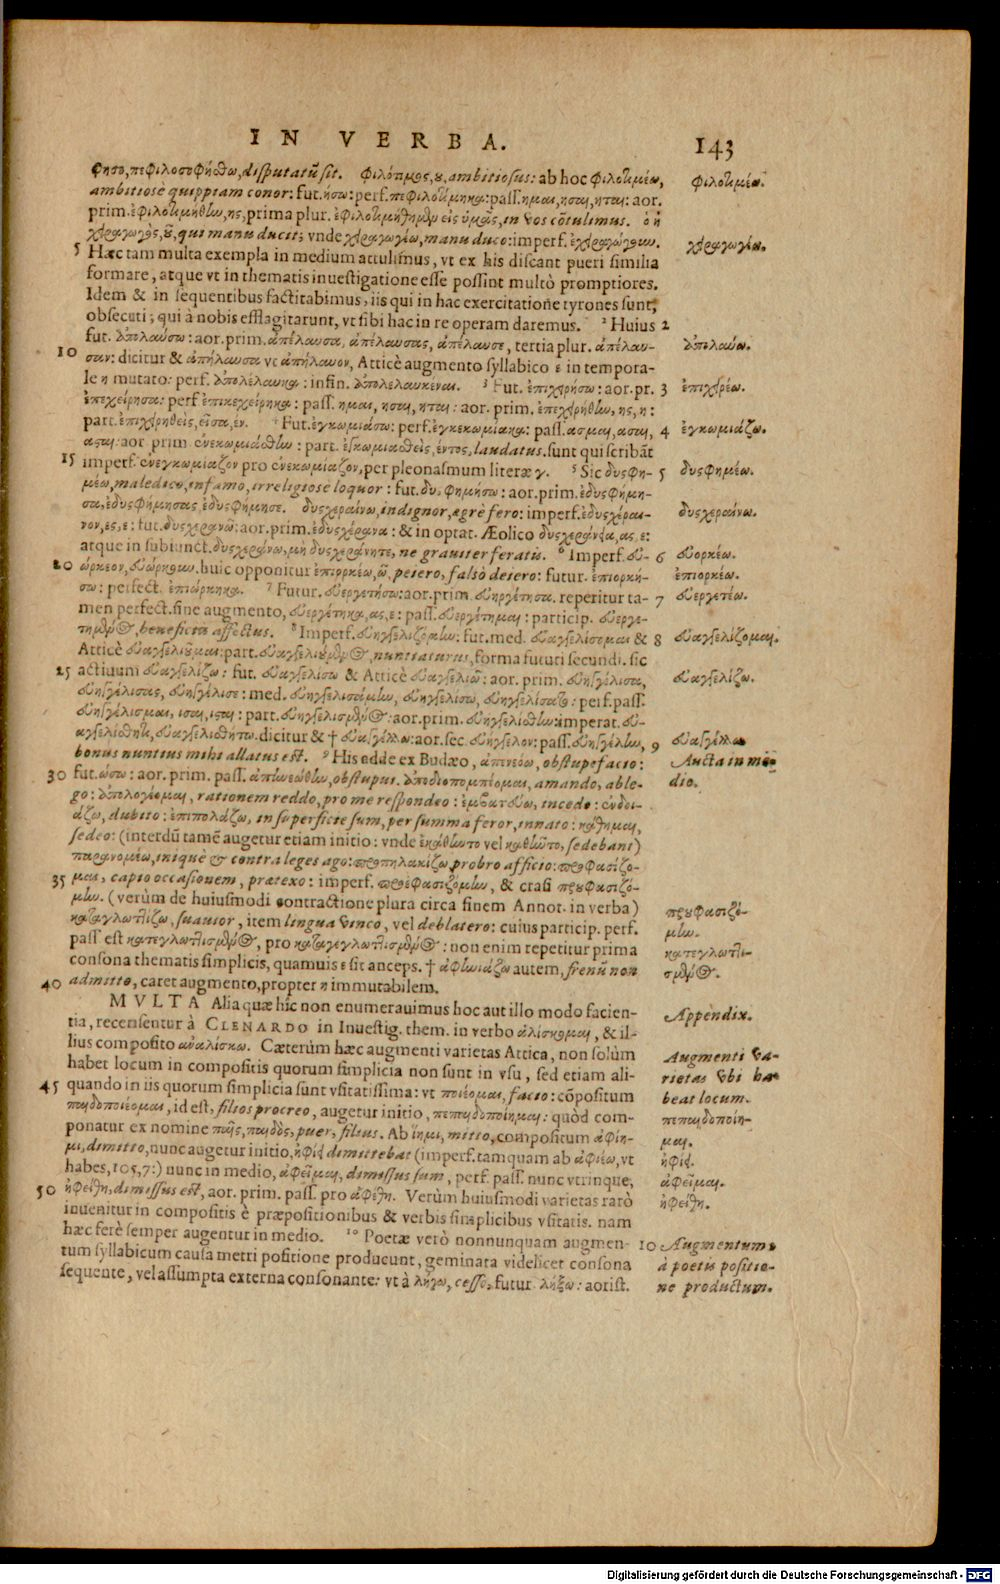 IN VERBA. 143
φησο, πεφιλοσοφήσθω, disputatū sit. φιλότιμος, ου, ambitiosus: ab hoc φιλοτιμέω,
ambitiosè quippiam conor: fut. ήσω: perf. πεφιλοτίμηκα: pass. ημαι, ησαι, ηται: aor.
prim. ἐφιλοτιμήθην, ης, prima plur. ἐφιλοτιμήθημεν εἰς ὑμᾶς, in vos cōtulimus. ὁ ἡ
χειραγωγὸς, οῦ, qui manu ducit; vnde χειραγωγέω, manu duco: imperf. ἐχειραγώγουν.
5 Hæc tam multa exempla in medium attulimus, vt ex his discant pueri similia
formare, atque vt in thematis inuestigatione esse possint multò promptiores.
Idem & in sequentibus factitabimus, iis qui in hac exercitatione tyrones sunt,
obsecuti; qui à nobis efflagitarunt, vt sibi hac in re operam daremus. ² Huius
fut. ἀπολαύσω: aor. prim. ἀπέλαυσα, ἀπέλαυσας, ἀπέλαυσε, tertia plur. ἀπέλαυ-
10 σαν: dicitur & ἀπήλαυσα vt ἀπήλαυον, Atticè augmento syllabico ε in tempora-
le η mutato: perf. ἀπολέλαυκα: infin. ἀπολελαυκέναι. ³ Fut. ἐπιχειρήσω: aor. pr.
ἐπεχείρησα: perf ἐπικεχείρηκα: pass. ημαι, ησαι, ηται: aor. prim. ἐπεχειρήθην, ης, η:
part. ἐπιχειρηθεὶς, εῖσα, έν. ⁴ Fut. ἐγκωμιάσω: perf. ἐγκεκωμίακα: pass. ασμαι, ασαι,
ασται: aor. prim. ἐνεκωμιάσθην: part. ἐγκωμιασθεὶς, έντος, laudatus. sunt qui scribāt
15 imperf. ἐνεγκωμίαζον pro ἐνεκωμίαζον, per pleonasmum literæ γ. ⁵ Sic δυσφη-
μέω, maledico, infamo, irreligiosè loquor: fut. δυσφημήσω: aor. prim. ἐδυσφήμη-
σα, ἐδυσφήμησας, ἐδυσφήμησε. δυσχεραίνω, indignor, ægrè fero: imperf. ἐδυσχέραι-
νον, ες, ε: fut. δυσχερανῶ: aor. prim. ἐδυσχέρανα: & in optat. Æolico δυσχεράνεια, ας, ε:
atque in subiunct. δυσχεράνω, μὴ δυσχεράνητε, ne grauiter feratis. ⁶ Imperf. εὐ-
20 ώρκεον, εὐώρκουν. huic opponitur ἐπιορκέω, ῶ, peiero, falsò deiero: futur. ἐπιορκή-
σω: perfect. ἐπιώρκηκα. ⁷ Futur. εὐεργετήσω: aor. prim. εὐηργέτησα. reperitur ta-
men perfect. sine augmento, εὐεργέτηκα, ας, ε: pass. εὐεργέτημαι: particip. εὐεργε-
τημένος, beneficio affectus. ⁸ Imperf. εὐηγγελιζόμην: fut. med. εὐαγγελίσομαι &
Atticè εὐαγγελιοῦμαι: part. εὐαγγελιούμενος, nuntiaturus, forma futuri secundi. sic
25 actiuum εὐαγγελίζω: fut. εὐαγγελίσω & Atticè εὐαγγελιῶ: aor. prim. εὐηγγέλισα,
εὐηγγέλισας, εὐηγγέλισε: med. εὐηγγελισάμην, εὐηγγελίσω, εὐηγγελίσατο: perf. pass.
εὐηγγέλισμαι, ισαι, ισται: part. εὐηγγελισμένος: aor. prim. εὐηγγελίσθην: imperat. εὐ-
αγγελίσθητι, εὐαγγελισθήτω. dicitur & † εὐαγγέλλω: aor. sec. εὐήγγελον: pass. εὐηγγέλην,
bonus nuntius mihi allatus est. ⁹ His adde ex Budæo, ἀπινεόω, obstupefacio:
30 fut. ώσω: aor. prim. pass. ἀπινεώθην, obstupui. ἀποδιοπομπέομαι, amando, able-
go: ἀπολογέομαι, rationem reddo, pro me respondeo: ἐμβατεύω, incedo: ἐνδοι-
άζω, dubito: ἐπιπολάζω, in superficie sum, per summa feror, innato: κάθημαι,
sedeo: (interdū tamē augetur etiam initio: vnde ἐκάθηντο vel καθῆντο, sedebant)
παρανομέω, iniquè & contra leges ago: προπηλακίζω probro afficio: προφασίζο-
35 μαι, capto occasionem, prætexo: imperf. προεφασιζόμην, & crasi προυφασιζό-
μην. (verùm de huiusmodi contractione plura circa finem Annot. in verba)
καταγλωττίζω, suauior, item lingua vinco, vel deblatero: cuius particip. perf.
pass est κατεγλωττισμένος, pro καταγεγλωττισμένος: non enim repetitur prima
consona thematis simplicis, quamuis ε sit anceps. † ἀφηνιάζω autem, frenū non
40 admitto, caret augmento, propter η immutabilem.
MVLTA Alia quæ hîc non enumerauimus hoc aut illo modo facien-
tia, recensentur à CLENARDO in Inuestig. them. in verbo ἁλίσκομαι, & il-
lius composito ἀναλίσκω. Cæterùm hæc augmenti varietas Attica, non solùm
habet locum in compositis quorum simplicia non sunt in vsu, sed etiam ali-
45 quando in iis quorum simplicia sunt vsitatissima: vt ποιέομαι, facio: cōpositum
παιδοποιέομαι, id est, filios procreo, augetur initio, πεπαιδοποίημαι: quòd com-
ponatur ex nomine παῖς, παιδὸς, puer, filius. Ab ἵημι, mitto, compositum ἀφίη-
μι, dimitto, nunc augetur initio, ἠφίει dimittebat (imperf. tamquam ab ἀφιέω, vt
habes, 105, 7:) nunc in medio, ἀφεῖμαι, dimissus sum, perf. pass. nunc vtrinque,
50 ἠφείθη, dimissus est, aor. prim. pass. pro ἀφέθη. Verùm huiusmodi varietas rarò
inuenitur in compositis è præpositionibus & verbis simplicibus vsitatis. nam
hæc ferè semper augentur in medio. ¹⁰ Poetæ verò nonnunquam augmen-
tum syllabicum causa metri positione producunt, geminata videlicet consona
sequente, vel assumpta externa consonante: vt à λήγω, cesso, futur. λήξω: aorist.
φιλοτιμέω.
χειραγωγέω.
2 ἀπολαύω.
3 ἐπιχειρέω.
4 ἐγκωμιάζω.
5 δυσφημέω.
δυσχεραίνω.
6 εὐορκέω.
ἐπιορκέω.
7 εὐεργετέω.
8 εὐαγγελίζομαι.
εὐαγγελίζω.
εὐαγγέλλω
9 Aucta in me-
dio.
προυφασιζό-
μην.
κατεγλωττι-
σμένος.
Appendix.
Augmenti va-
rietas vbi ha-
beat locum.
πεπαιδοποίη-
μαι.
ἠφίει.
ἀφεῖμαι.
ἠφείθη.
10 Augmentum
à poetis positio-
ne productum.
Digitalisierung gefördert durch die Deutsche Forschungsgemeinschaft - DFG